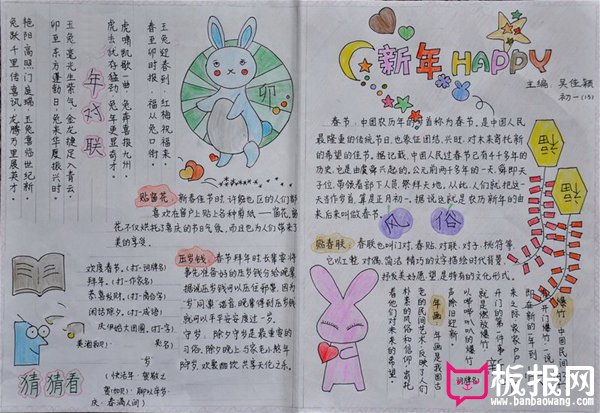 新年 HAPPY
主编：吴佳颖
初一(13)
春节，中国农历年的岁首称为春节，是中国人民
最隆重的传统节日，也象征团结、兴旺，对未来寄托新
的希望的佳节。据记载，中国人民过春节已有4千多年的
历史，它是由虞舜兴起的。公元前两千多年的一天，舜即天
子位，带领着部下人员，祭拜天地。从此，人们就把这一
天当作岁首，算是正月初一。据说这就是农历新年的由
来，后来叫做春节。
福
福
风俗
贴春联：春联也叫门对、春贴、对联、对子、桃符等，
它以工整、对偶、简洁、精巧的文字描绘时代背景，
抒发美好愿望，是特有的文化形式。
爆竹：中国民间
开门爆竹
在新的一年到
来之际，家家户户
开门的第一件事
就是燃放爆竹，
以哔哔叭叭的爆竹
声除旧迎新。
年画：年画是我国古
老的民间艺术，反映了人们
朴素的风俗和信仰，寄托
着他们对未来的希望。
年对联
玉兔迎春到 红梅祝福来
春至卯时报 福从兔口衔
虎啸凯歌一曲 兔奔喜报九州
虎去犹存猛劲 兔年更显奇才
玉兔毫光生紫气 金龙捷足入青云
卯至东方蓬勃日 兔来华夏振兴时
艳阳高照门庭瑞 玉兔喜临世纪新
兔跃千里传喜讯 龙腾万里展英才
卯
贴窗花：新春佳节时，许多地区的人们都
喜欢在窗户上贴上各种剪纸——窗花。窗
花不仅烘托了喜庆的节日气氛，而且也为人们带来了
美的享受。
压岁钱：春节拜年时，长辈要将
事先准备好的压岁钱分给晚辈，
据说压岁钱可以压住邪祟，因为
“岁”与“祟”谐音，晚辈得到压岁钱
就可以平平安安度过一岁。
守岁：除夕守岁是最重要的
习俗，除夕晚上，与家老小熬年
除岁，欢聚酣饮，共享天伦之乐。
欢度春节。(打一词牌名)
拜年。(打一作家名)
恭喜发财。(打一离合字)
闲话除夕。(打一成语)
庆伊始大团圆。(打一字)
猜猜看
板报网
www.banbaowang.com